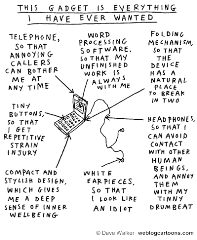 THIS GADGET IS EVERYTHING
I HAVE EVER WANTED
TELEPHONE,
SO THAT
ANNOYING
CALLERS
CAN BOTHER
ME AT
ANY TIME
WORD
PROCESSING
SOFTWARE,
SO THAT MY
UNFINISHED
WORK IS
ALWAYS
WITH ME
FOLDING
MECHANISM,
SO THAT
THE
DEVICE
HAS A
NATURAL
PLACE
TO BREAK
IN TWO
TINY
BUTTONS,
SO THAT
I GET
REPETITIVE
STRAIN
INJURY
HEADPHONES,
SO THAT I
CAN AVOID
CONTACT
WITH OTHER
HUMAN
BEINGS,
AND ANNOY
THEM
WITH MY
TINNY
DRUMBEAT
COMPACT AND
STYLISH DESIGN,
WHICH GIVES
ME A DEEP
SENSE OF INNER
WELLBEING
WHITE
EARPIECES,
SO THAT
I LOOK LIKE
AN IDIOT
© Dave Walker weblogcartoons.com